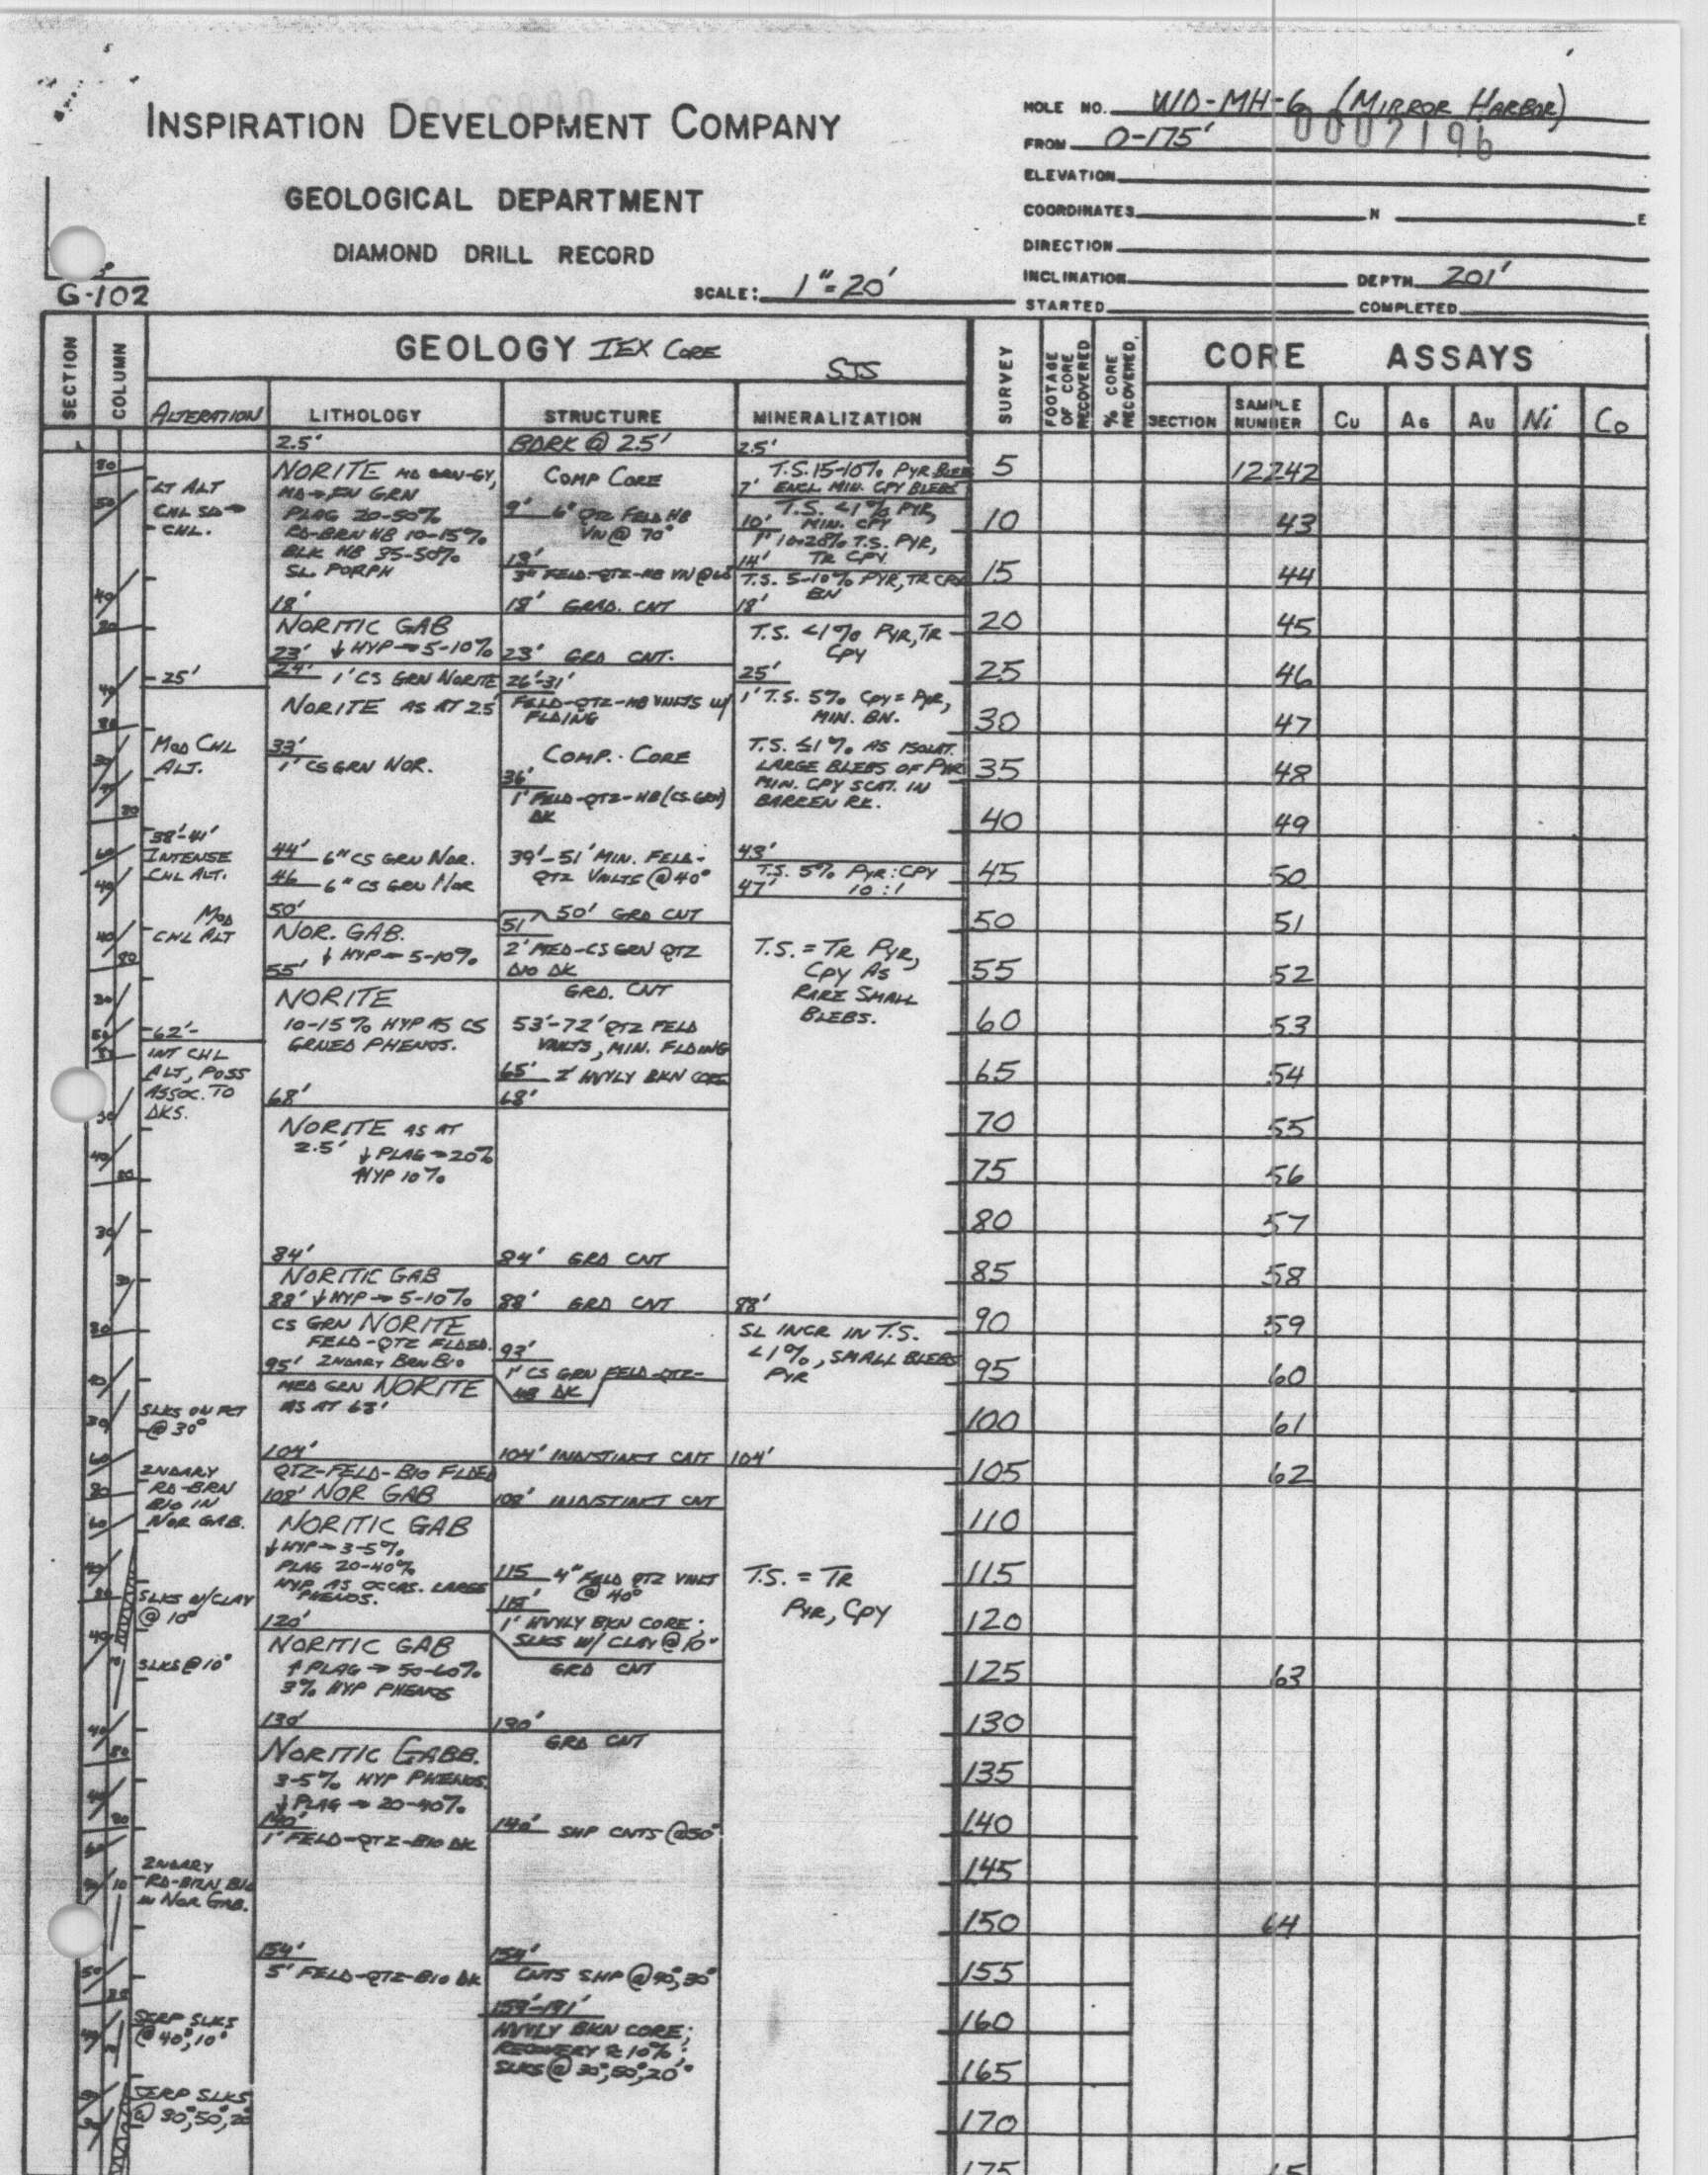 INSPIRATION DEVELOPMENT COMPANY
GEOLOGICAL DEPARTMENT
DIAMOND DRILL RECORD
SCALE: 1"=20'
G-102
HOLE NO. WD-MH-6 (MIRROR HARBOR)
0002196
FROM 0-175'
ELEVATION
COORDINATES N E
DIRECTION
INCLINATION DEPTH 201'
STARTED COMPLETED
SECTION
COLUMN
GEOLOGY IEX CORE
SJS
SURVEY
FOOTAGE OF CORE RECOVERED
% CORE RECOVERED.
CORE ASSAYS
ALTERATION
LITHOLOGY
STRUCTURE
MINERALIZATION
SECTION
SAMPLE NUMBER
Cu
Ag
Au
Ni
Co
LT ALT
CHL SD →
CHL.
25'
MOD CHL
ALT.
38'-41'
INTENSE
CHL ALT.
MOD
CHL ALT
62'
INT CHL
ALT, POSS
ASSOC. TO
DKS.
SLKS ON FCT
@ 30°
2NDARY
RD-BRN
BIO IN
NOR GAB.
SLKS W/CLAY
@ 10°
SLKS @ 10°
2NDARY
RD-BRN BIO
IN NOR GAB.
SERP SLKS
@ 40°, 10°
SERP SLKS
@ 30°, 50°, 20
2.5'
NORITE MD GRN-GY,
MD → FN GRN
PLAG 20-50%
RD-BRN HB 10-15%
BLK HB 35-50%
SL. PORPH
18'
NORITIC GAB
23' ↓ HYP → 5-10%
24' 1' CS GRN NORITE
NORITE AS AT 2.5
33'
1' CS GRN NOR.
44' 6" CS GRN NOR.
46 6" CS GRN NOR
50'
NOR. GAB.
↓ HYP → 5-10%
55'
NORITE
10-15% HYP AS CS
GRNED PHENOS.
68'
NORITE AS AT
2.5' ↓ PLAG → 20%
↑HYP 10%
84'
NORITIC GAB
88' ↓ HYP → 5-10%
CS GRN NORITE
FELD-QTZ FLDED.
95' 2NDARY BRN BIO
MED GRN NORITE
AS AT 68'
104'
QTZ-FELD-BIO FLDED
108' NOR GAB
NORITIC GAB
↓ HYP → 3-5%
PLAG 20-40%
HYP AS OCCAS. LARGE
PHENOS.
120'
NORITIC GAB
↑ PLAG → 50-60%
3% HYP PHENOS
130'
NORITIC GABB.
3-5% HYP PHENOS.
↓ PLAG → 20-40%
140'
1' FELD-QTZ-BIO DK
154'
5' FELD-QTZ-BIO DK
BDRK @ 2.5'
COMP CORE
9' 6" QTZ FELD HB
VN @ 70°
13'
3" FELD-QTZ-HB VN @
18' GRAD. CNT
23' GRD CNT.
26'-31'
FELD-QTZ-HB VNLTS W/
FLDING
COMP. CORE
36'
1' FELD-QTZ-HB (CS. GRN)
DK
39'-51' MIN. FELD-
QTZ VNLTS @ 40°
50' GRD CNT
51'
2' MED-CS GRN QTZ
DIO DK
GRD. CNT
53'-72' QTZ FELD
VNLTS, MIN. FLDING
65' 2' HVYLY BKN CORE
68'
84' GRD CNT
88' GRD CNT
93'
1' CS GRN FELD-QTZ-
HB DK
104' INDISTINCT CNT
108' INDISTINCT CNT
115 4" FELD QTZ VNLT
@ 40°
118'
1' HVYLY BKN CORE;
SLKS W/ CLAY @ 10°
GRD CNT
130'
GRD CNT
140' SHP CNTS @ 50°
154'
CNTS SHP @ 40°, 30°
159'-191'
HVYLY BKN CORE;
RECOVERY ≈ 10%;
SLKS @ 30°, 50°, 20°
2.5'
T.S. 15-10% PYR BLEB
7' ENCL. MIN. CPY BLEBS
T.S. <1% PYR,
10' MIN. CPY
1' 10-20% T.S. PYR,
14' TR CPY
T.S. 5-10% PYR, TR CPY
BN
18'
T.S. <1% PYR, TR
CPY
25'
1' T.S. 5% CPY = PYR,
MIN. BN.
T.S. ≤1% AS ISOLAT.
LARGE BLEBS OF PYR
MIN. CPY SCAT. IN
BARREN RK.
43'
T.S. 5% PYR:CPY
47' 10:1
T.S. = TR PYR,
CPY AS
RARE SMALL
BLEBS.
88'
SL INCR IN T.S.
<1%, SMALL BLEBS
PYR
104'
T.S. = TR
PYR, CPY
5 12242
10 43
15 44
20 45
25 46
30 47
35 48
40 49
45 50
50 51
55 52
60 53
65 54
70 55
75 56
80 57
85 58
90 59
95 60
100 61
105 62
110
115
120
125 63
130
135
140
145
150 64
155
160
165
170
175 65